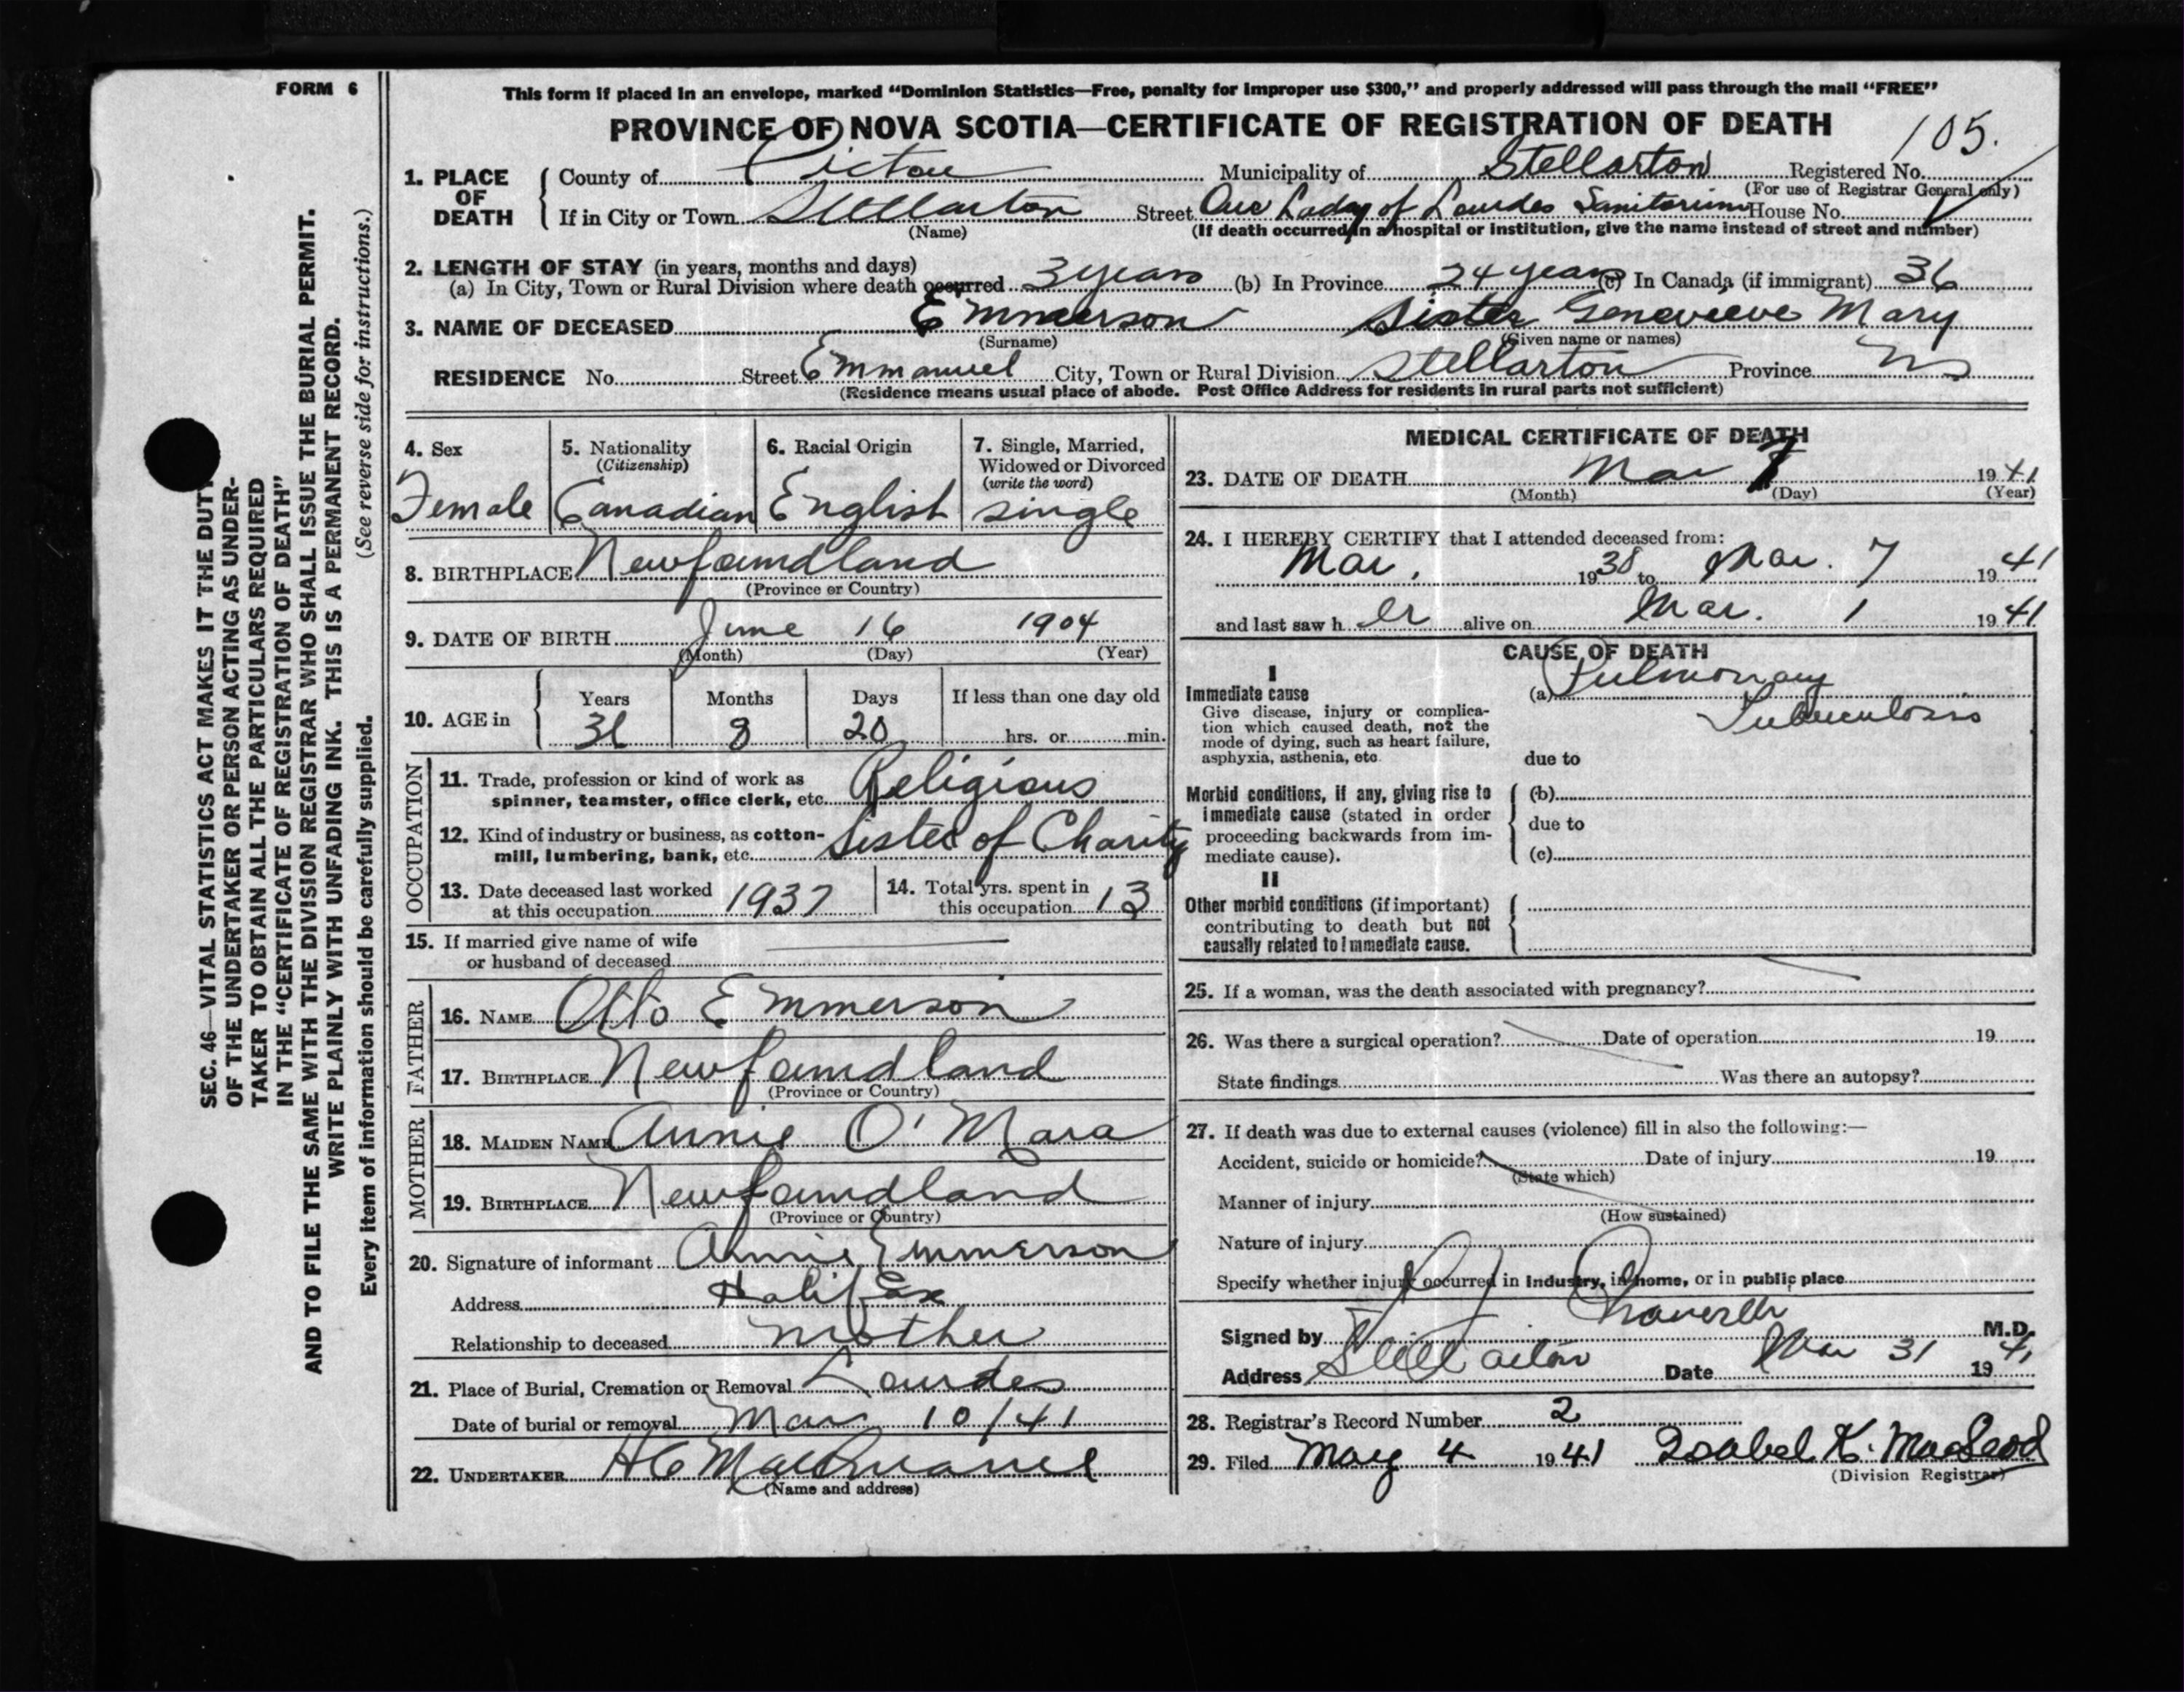 FORM 6
This form if placed in an envelope, marked "Dominion Statistics—Free, penalty for improper use $300," and properly addressed will pass through the mail "FREE"
PROVINCE OF NOVA SCOTIA—CERTIFICATE OF REGISTRATION OF DEATH
105.
1. PLACE OF DEATH
County of Pictou Municipality of Stellarton Registered No.
(For use of Registrar General only)
If in City or Town Stellarton Street Our Lady of Lourdes Sanitorium House No.
(Name) (If death occurred in a hospital or institution, give the name instead of street and number)
2. LENGTH OF STAY (in years, months and days)
(a) In City, Town or Rural Division where death occurred 3 years (b) In Province 24 years (c) In Canada (if immigrant) 36
3. NAME OF DECEASED Emmerson Sister Genevieve Mary
(Surname) (Given name or names)
RESIDENCE No. Street Emmanuel City, Town or Rural Division Stellarton Province NS
(Residence means usual place of abode. Post Office Address for residents in rural parts not sufficient)
4. Sex
Female
5. Nationality
(Citizenship)
Canadian
6. Racial Origin
English
7. Single, Married,
Widowed or Divorced
(write the word)
single
8. BIRTHPLACE Newfoundland
(Province or Country)
9. DATE OF BIRTH June 16 1904
(Month) (Day) (Year)
10. AGE in
Years Months Days If less than one day old
8 20 hrs. or min.
OCCUPATION
11. Trade, profession or kind of work as
spinner, teamster, office clerk, etc. Religious
12. Kind of industry or business, as cotton-
mill, lumbering, bank, etc. Sister of Charity
13. Date deceased last worked
at this occupation 1937
14. Total yrs. spent in
this occupation 13
15. If married give name of wife
or husband of deceased
FATHER
16. NAME Otto Emmerson
17. BIRTHPLACE Newfoundland
(Province or Country)
MOTHER
18. MAIDEN NAME Annie O'Mara
19. BIRTHPLACE Newfoundland
(Province or Country)
20. Signature of informant Annie Emmerson
Address Halifax
Relationship to deceased Mother
21. Place of Burial, Cremation or Removal Lourdes
Date of burial or removal Mar 10/41
22. UNDERTAKER
(Name and address)
MEDICAL CERTIFICATE OF DEATH
23. DATE OF DEATH Mar 7 1941
(Month) (Day) (Year)
24. I HEREBY CERTIFY that I attended deceased from:
Mar, 1938 to Mar. 7 1941
and last saw h er alive on Mar. 1 1941
CAUSE OF DEATH
I
Immediate cause
Give disease, injury or complica-
tion which caused death, not the
mode of dying, such as heart failure,
asphyxia, asthenia, etc.
(a) Pulmonary
Tuberculosis
due to
Morbid conditions, if any, giving rise to
immediate cause (stated in order
proceeding backwards from im-
mediate cause).
(b)
due to
(c)
II
Other morbid conditions (if important)
contributing to death but not
causally related to immediate cause.
25. If a woman, was the death associated with pregnancy?
26. Was there a surgical operation? Date of operation 19
State findings Was there an autopsy?
27. If death was due to external causes (violence) fill in also the following:—
Accident, suicide or homicide? Date of injury 19
(State which)
Manner of injury
(How sustained)
Nature of injury
Specify whether injury occurred in Industry, in home, or in public place
Signed by M.D.
Address Stellarton Date Mar 31 1941
28. Registrar's Record Number 2
29. Filed May 4 1941 Isabel K. MacLeod
(Division Registrar)
SEC. 46—VITAL STATISTICS ACT MAKES IT THE DUTY
OF THE UNDERTAKER OR PERSON ACTING AS UNDER-
TAKER TO OBTAIN ALL THE PARTICULARS REQUIRED
IN THE "CERTIFICATE OF REGISTRATION OF DEATH"
AND TO FILE THE SAME WITH THE DIVISION REGISTRAR WHO SHALL ISSUE THE BURIAL PERMIT.
WRITE PLAINLY WITH UNFADING INK. THIS IS A PERMANENT RECORD.
Every item of information should be carefully supplied. (See reverse side for instructions.)